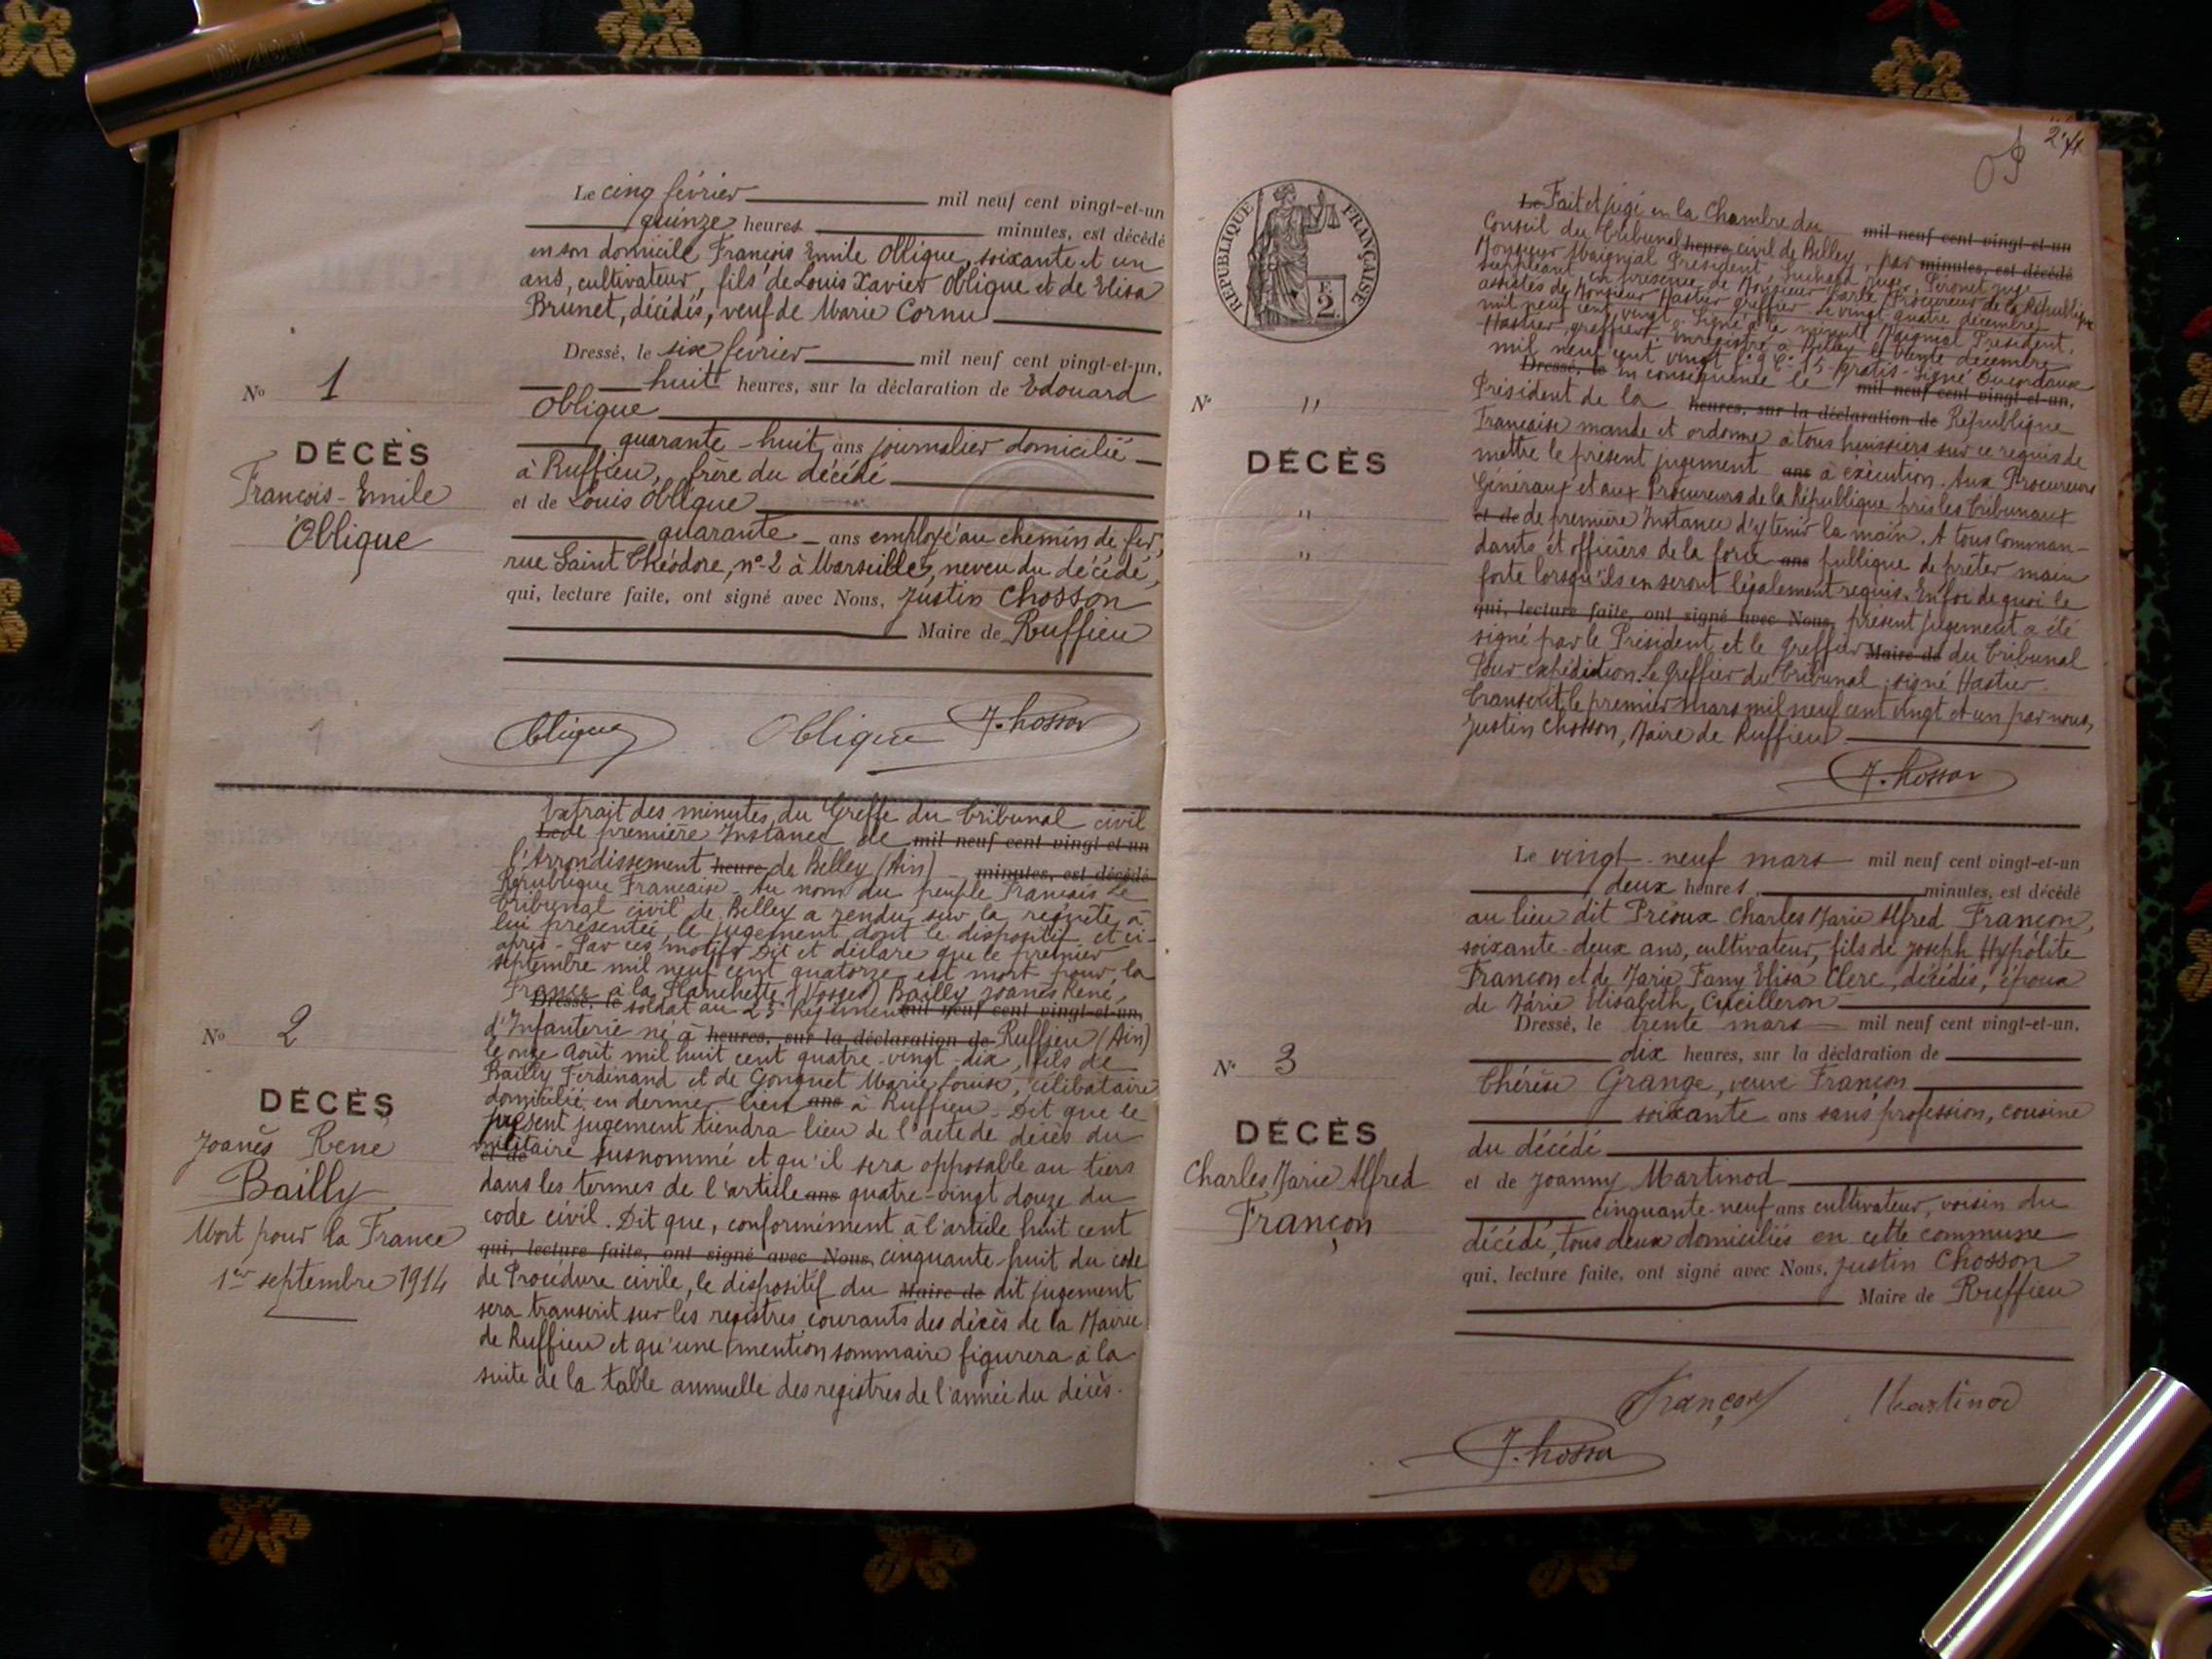 Le cinq février mil neuf cent vingt-et-un
quinze heures minutes, est décédé
en son domicile François Emile Oblique, soixante et un
ans, cultivateur, fils de Louis Xavier Oblique et de Elisa
Brunet, décédés, veuf de Marie Cornu
Dressé, le six février mil neuf cent vingt-et-un,
huit heures, sur la déclaration de Edouard
Oblique
quarante-huit ans journalier domicilié
à Ruffieu, frère du décédé
et de Louis Oblique
quarante ans employé au chemin de fer,
rue Saint Théodore, n° 2 à Marseille, neveu du décédé,
qui, lecture faite, ont signé avec Nous, Justin Chosson
Maire de Ruffieu
No 1
DÉCÈS
François-Emile
Oblique
Oblique Oblique J. Chosson
Extrait des minutes du Greffe du Tribunal civil
Le de première Instance de mil neuf cent vingt-et-un
l'Arrondissement heure de Belley (Ain) minutes, est décédé
République Française - Au nom du peuple Français Le
Tribunal civil de Belley a rendu sur la requête à
lui présentée le jugement dont le dispositif et ci-
après - Par ces motifs Dit et déclare que le premier
septembre mil neuf cent quatorze est mort pour la
France à la Planchette (Vosges) Bailly Joanès René,
Dressé, le soldat au 23 Régiment mil neuf cent vingt-et-un,
d'Infanterie né à heures, sur la déclaration de Ruffieu (Ain)
le onze Août mil huit cent quatre-vingt-dix, fils de
Bailly Ferdinand et de Gonguet Marie Louise, célibataire
domicilié en dernier lieu ans à Ruffieu - Dit que le
présent jugement tiendra lieu de l'acte de décès du
et de militaire susnommé et qu'il sera opposable au tiers
dans les termes de l'article ans quatre-vingt douze du
code civil. Dit que, conformément à l'article huit cent
qui, lecture faite, ont signé avec Nous, cinquante-huit du code
de Procédure civile, le dispositif du Maire de dit jugement
sera transcrit sur les registres courants des décès de la Mairie
de Ruffieu et qu'une mention sommaire figurera à la
suite de la table annuelle des registres de l'année du décès.
No 2
DÉCÈS
Joanès René
Bailly
Mort pour la France
1er septembre 1914
RÉPUBLIQUE FRANÇAISE
2
Le Fait et jugé en la Chambre du mil neuf cent vingt-et-un
Conseil du Tribunal heure civil de Belley, par minutes, est décédé
Monsieur Maignial Président, juge, Peronet juge
suppléant, en présence de Monsieur Procureur de la République
assistés de Monsieur Hastier greffier Le vingt quatre décembre
mil neuf cent vingt. Signé à la minute Maignial Président,
Hastier, greffier. Enregistré à Belley le trente décembre
mil neuf cent vingt f° 9 C. 15 - gratis - Signé
Dressé, le En conséquence le mil neuf cent vingt-et-un,
Président de la heures, sur la déclaration de République
Française mande et ordonne à tous huissiers sur ce requis de
mettre le présent jugement ans à exécution. Aux Procureurs
Généraux et aux Procureurs de la République près les Tribunaux
et de de première Instance d'y tenir la main. A tous Comman-
dants et officiers de la force ans publique de prêter main
forte lorsqu'ils en seront légalement requis. En foi de quoi le
qui, lecture faite, ont signé avec Nous, présent jugement a été
signé par le Président et le greffier Maire de du Tribunal
Pour expédition. Le greffier du Tribunal, signé Hastier.
Transcrit le premier mars mil neuf cent vingt et un par nous,
Justin Chosson, Maire de Ruffieu
J. Chosson
No "
DÉCÈS
"
"
Le vingt-neuf mars mil neuf cent vingt-et-un
deux heures minutes, est décédé
au lieu dit Préoux Charles Marie Alfred Françon,
soixante-deux ans, cultivateur, fils de Joseph Hypolite
Françon et de Marie Fany Elisa Clerc, décédés, époux
de Marie Elisabeth Cueilleron
Dressé, le trente mars mil neuf cent vingt-et-un,
dix heures, sur la déclaration de
Thérèse Grange, veuve Françon
soixante ans sans profession, cousine
du décédé
et de Joanny Martinod
cinquante-neuf ans cultivateur, voisin du
décédé, tous deux domiciliés en cette commune
qui, lecture faite, ont signé avec Nous, Justin Chosson
Maire de Ruffieu
No 3
DÉCÈS
Charles Marie Alfred
Françon
Françon Martinod
J. Chosson